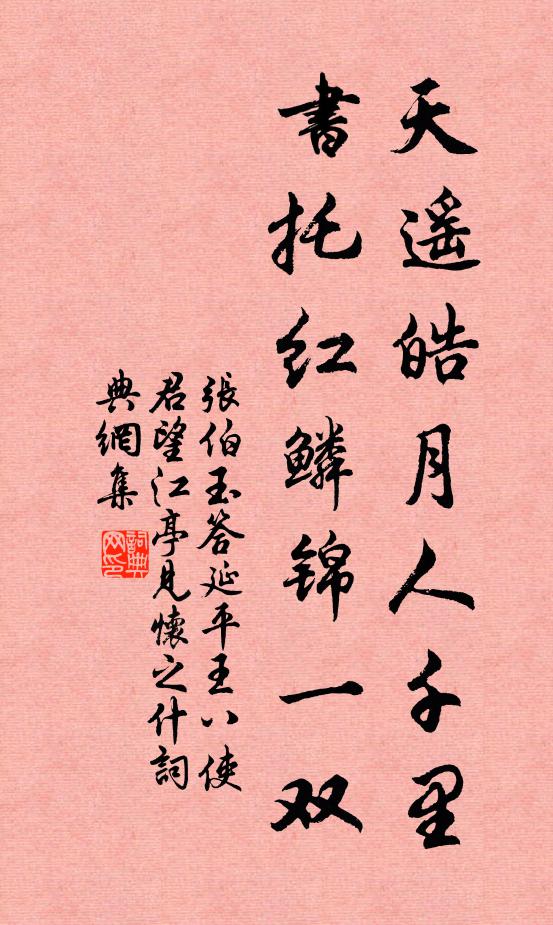 天遥皓月人千里
書托红鳞锦一双
張伯玉答延平王八使
君望江亭見懷之什詞
典網集
詞典
网印